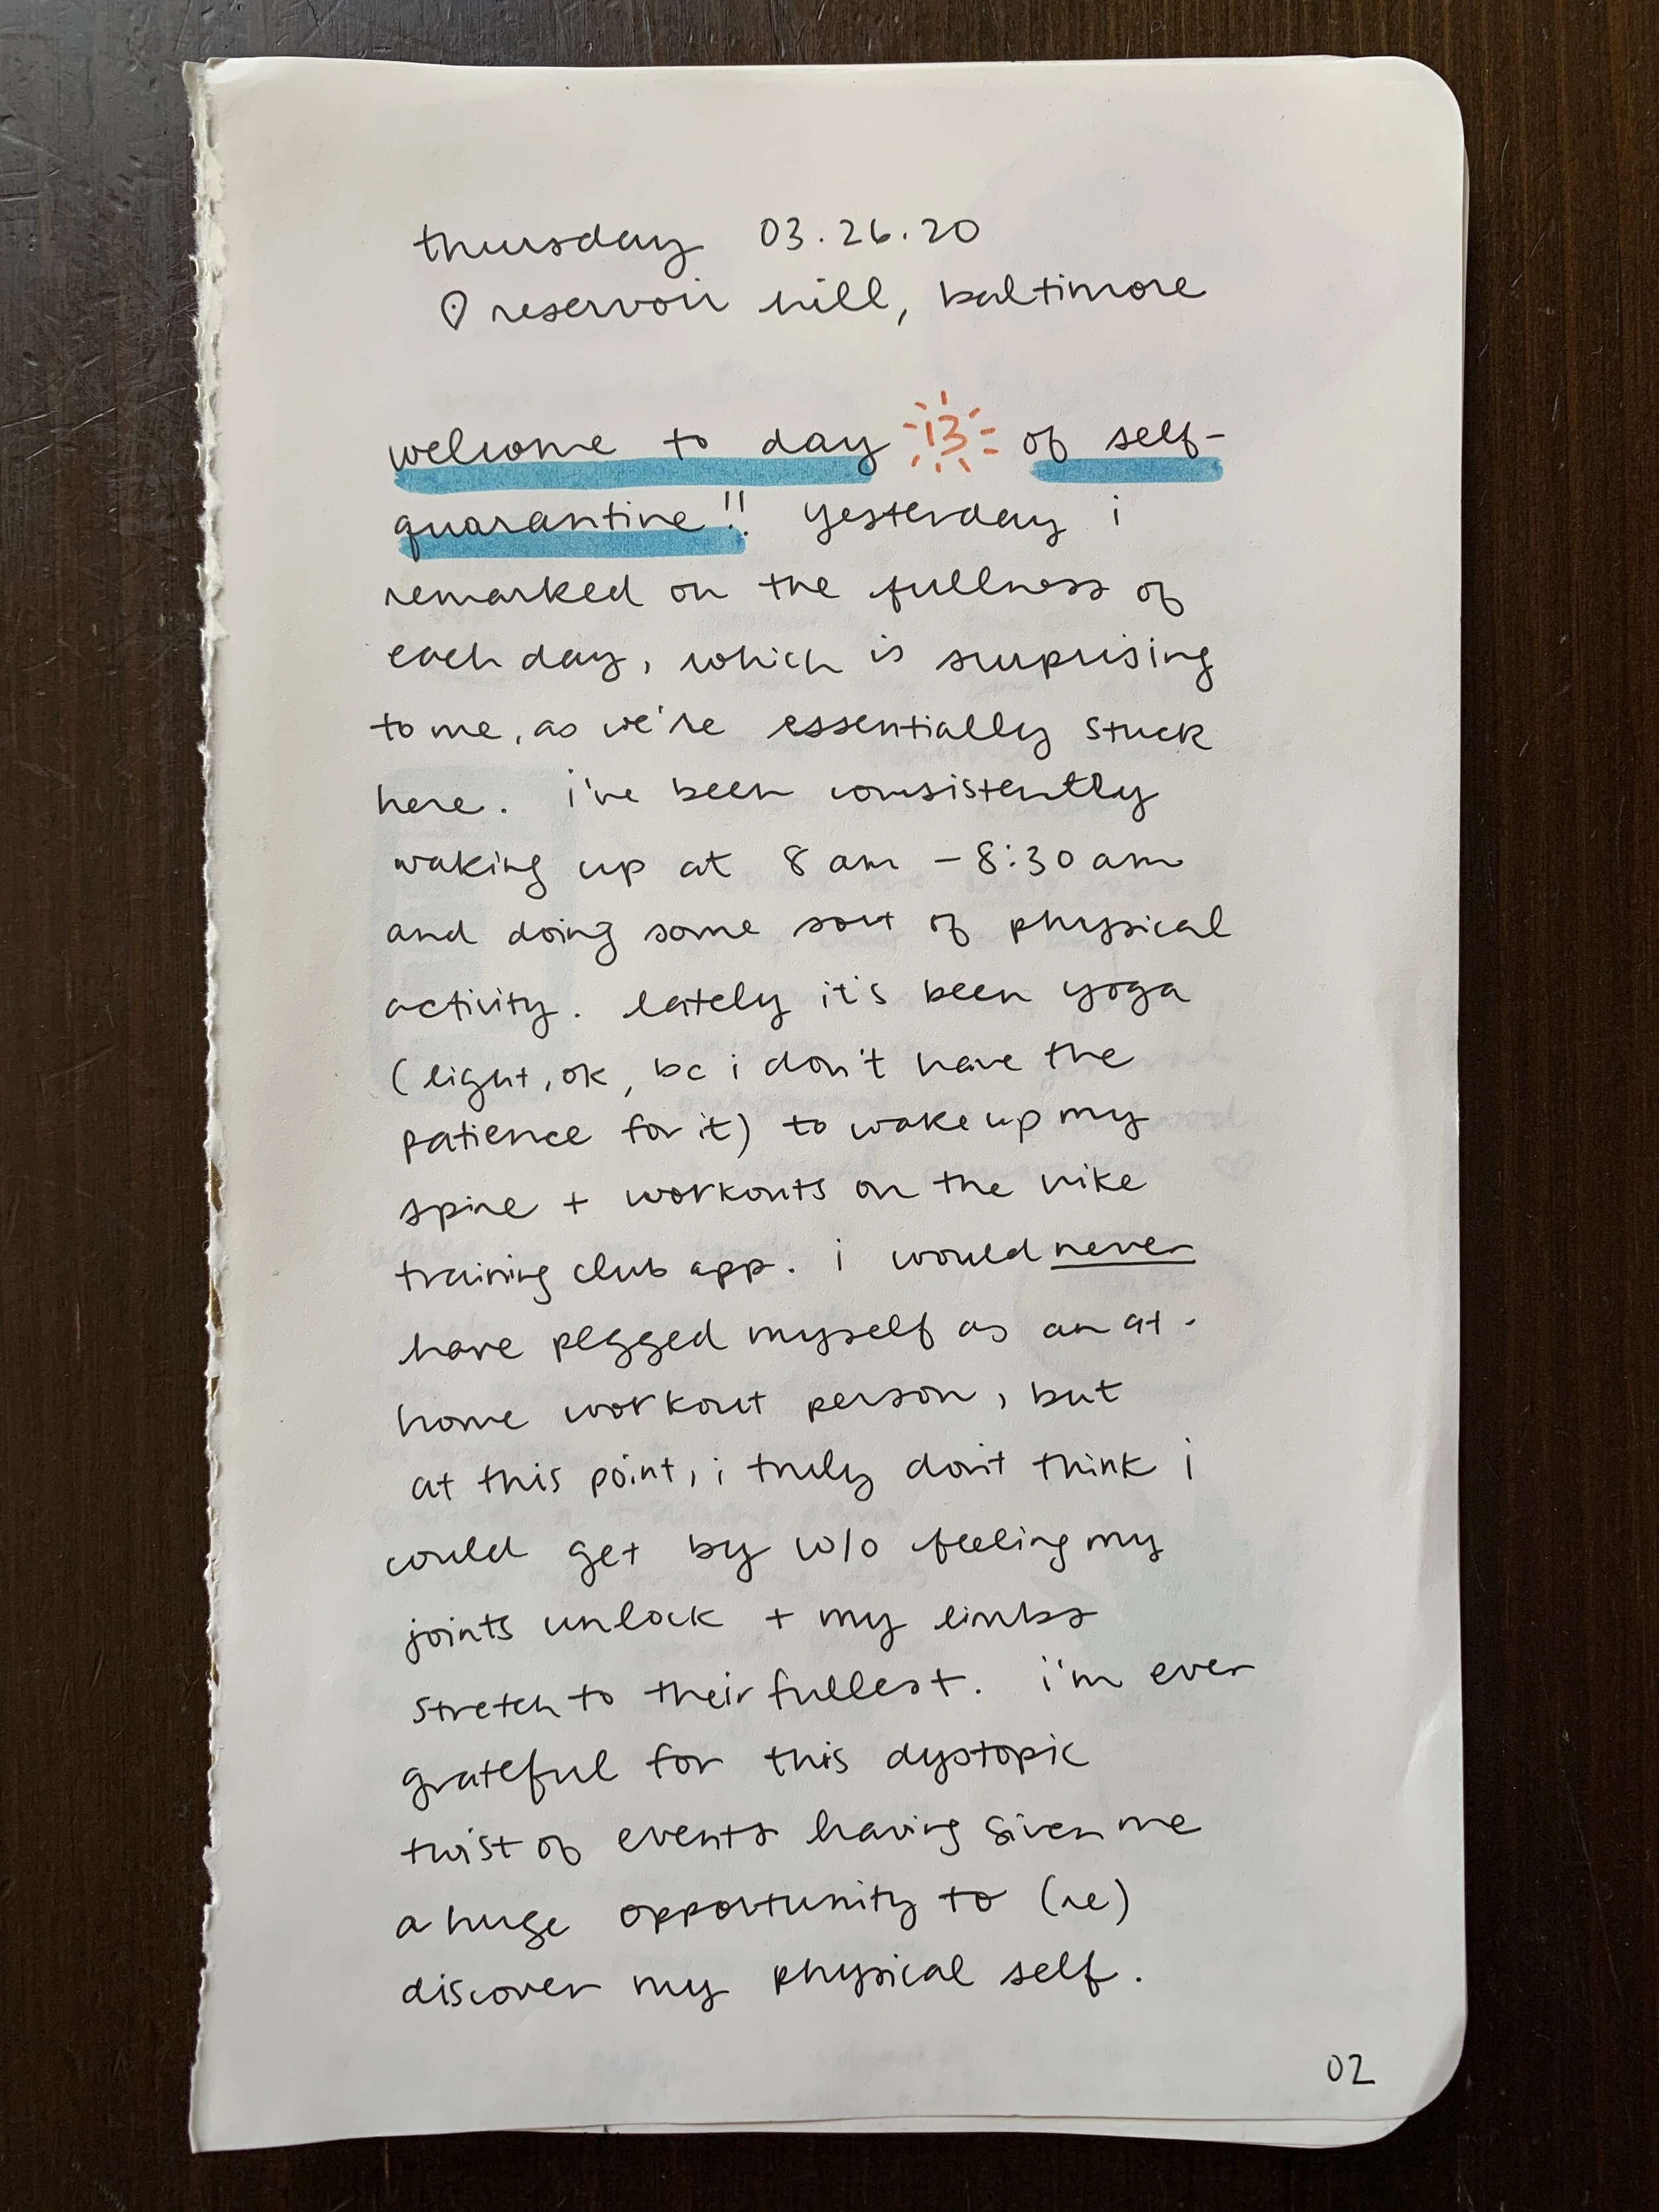 thursday 03.26.20
reservoir hill, baltimore
welcome to day 13 of self-
quarantine!! yesterday i
remarked on the fullness of
each day, which is surprising
to me, as we're essentially stuck
here. i've been consistently
waking up at 8 am - 8:30 am
and doing some sort of physical
activity. lately it's been yoga
(light, ok, bc i don't have the
patience for it) to wake up my
spine + workouts on the nike
training club app. i would never
have pegged myself as an at-
home workout person, but
at this point, i truly don't think i
could get by w/o feeling my
joints unlock + my limbs
stretch to their fullest. i'm ever
grateful for this dystopic
twist of events having given me
a huge opportunity to (re)
discover my physical self.
02